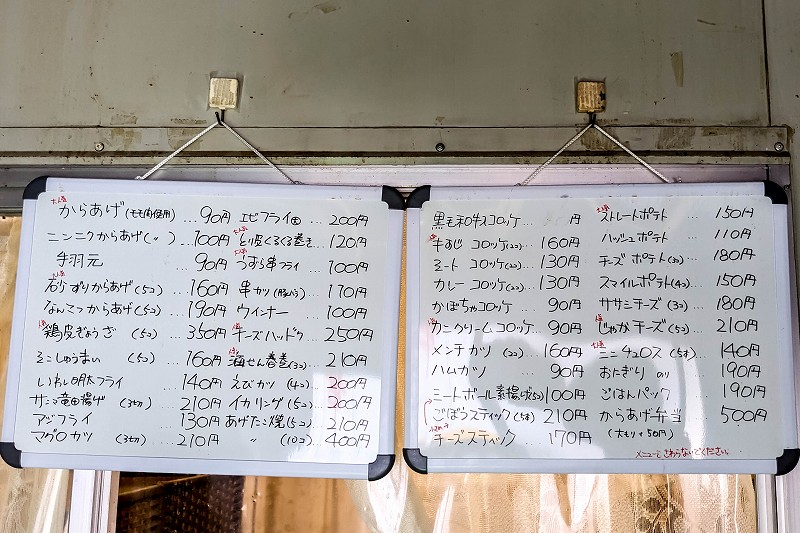 からあげ(モモ肉使用)…90円
ニンニクからあげ(〃)…100円
手羽元…90円
砂ずりからあげ(5コ)160円
なんこつからあげ(5コ)190円
鶏皮ぎょうざ(5コ)350円
えこしゅうまい(5コ)160円
いわし明太フライ140円
サンマ竜田揚げ(3切)210円
アジフライ130円
マグロカツ(3切)210円
エビフライ大…200円
とり皮くるくる巻き…120円
うずら串フライ100円
串カツ(豚バラ)…170円
ウインナー…100円
チーズハットグ…250円
海せん春巻(3コ)…210円
えびカツ(4コ)…200円
イカリング(5コ)…200円
あげたこ焼(5コ)…210円
〃(10コ)…400円
黒毛和牛コロッケ…円
牛すじコロッケ(2コ)160円
ミートコロッケ(2コ)130円
カレーコロッケ(2コ)130円
かぼちゃコロッケ90円
カニクリームコロッケ…90円
メンチカツ(2コ)160円
ハムカツ90円
ミートボール素揚げ(5コ)100円
ごぼうスティック(5本)210円
チーズスティック170円
ストレートポテト150円
ハッシュポテト110円
チーズポテト(3コ)180円
スマイルポテト(4コ)150円
ササミチーズ(3コ)180円
じゃがチーズ(5コ)210円
ミニチュロス(5本)140円
おにぎりのり190円
ごはんパック190円
からあげ弁当500円
(大もり+50円)
メニューにさわらないでください。